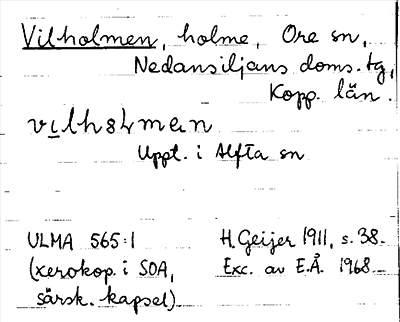 Vilholmen, holme, Ore sn,
Nedansiljans doms. tg,
Kopp. län.
Uppt. i Alfta sn
ULMA 565:1
(xerokop. i SOA,
särsk. kapsel)
H. Geijer 1911, s. 38.
Exc. av E.Å. 1968